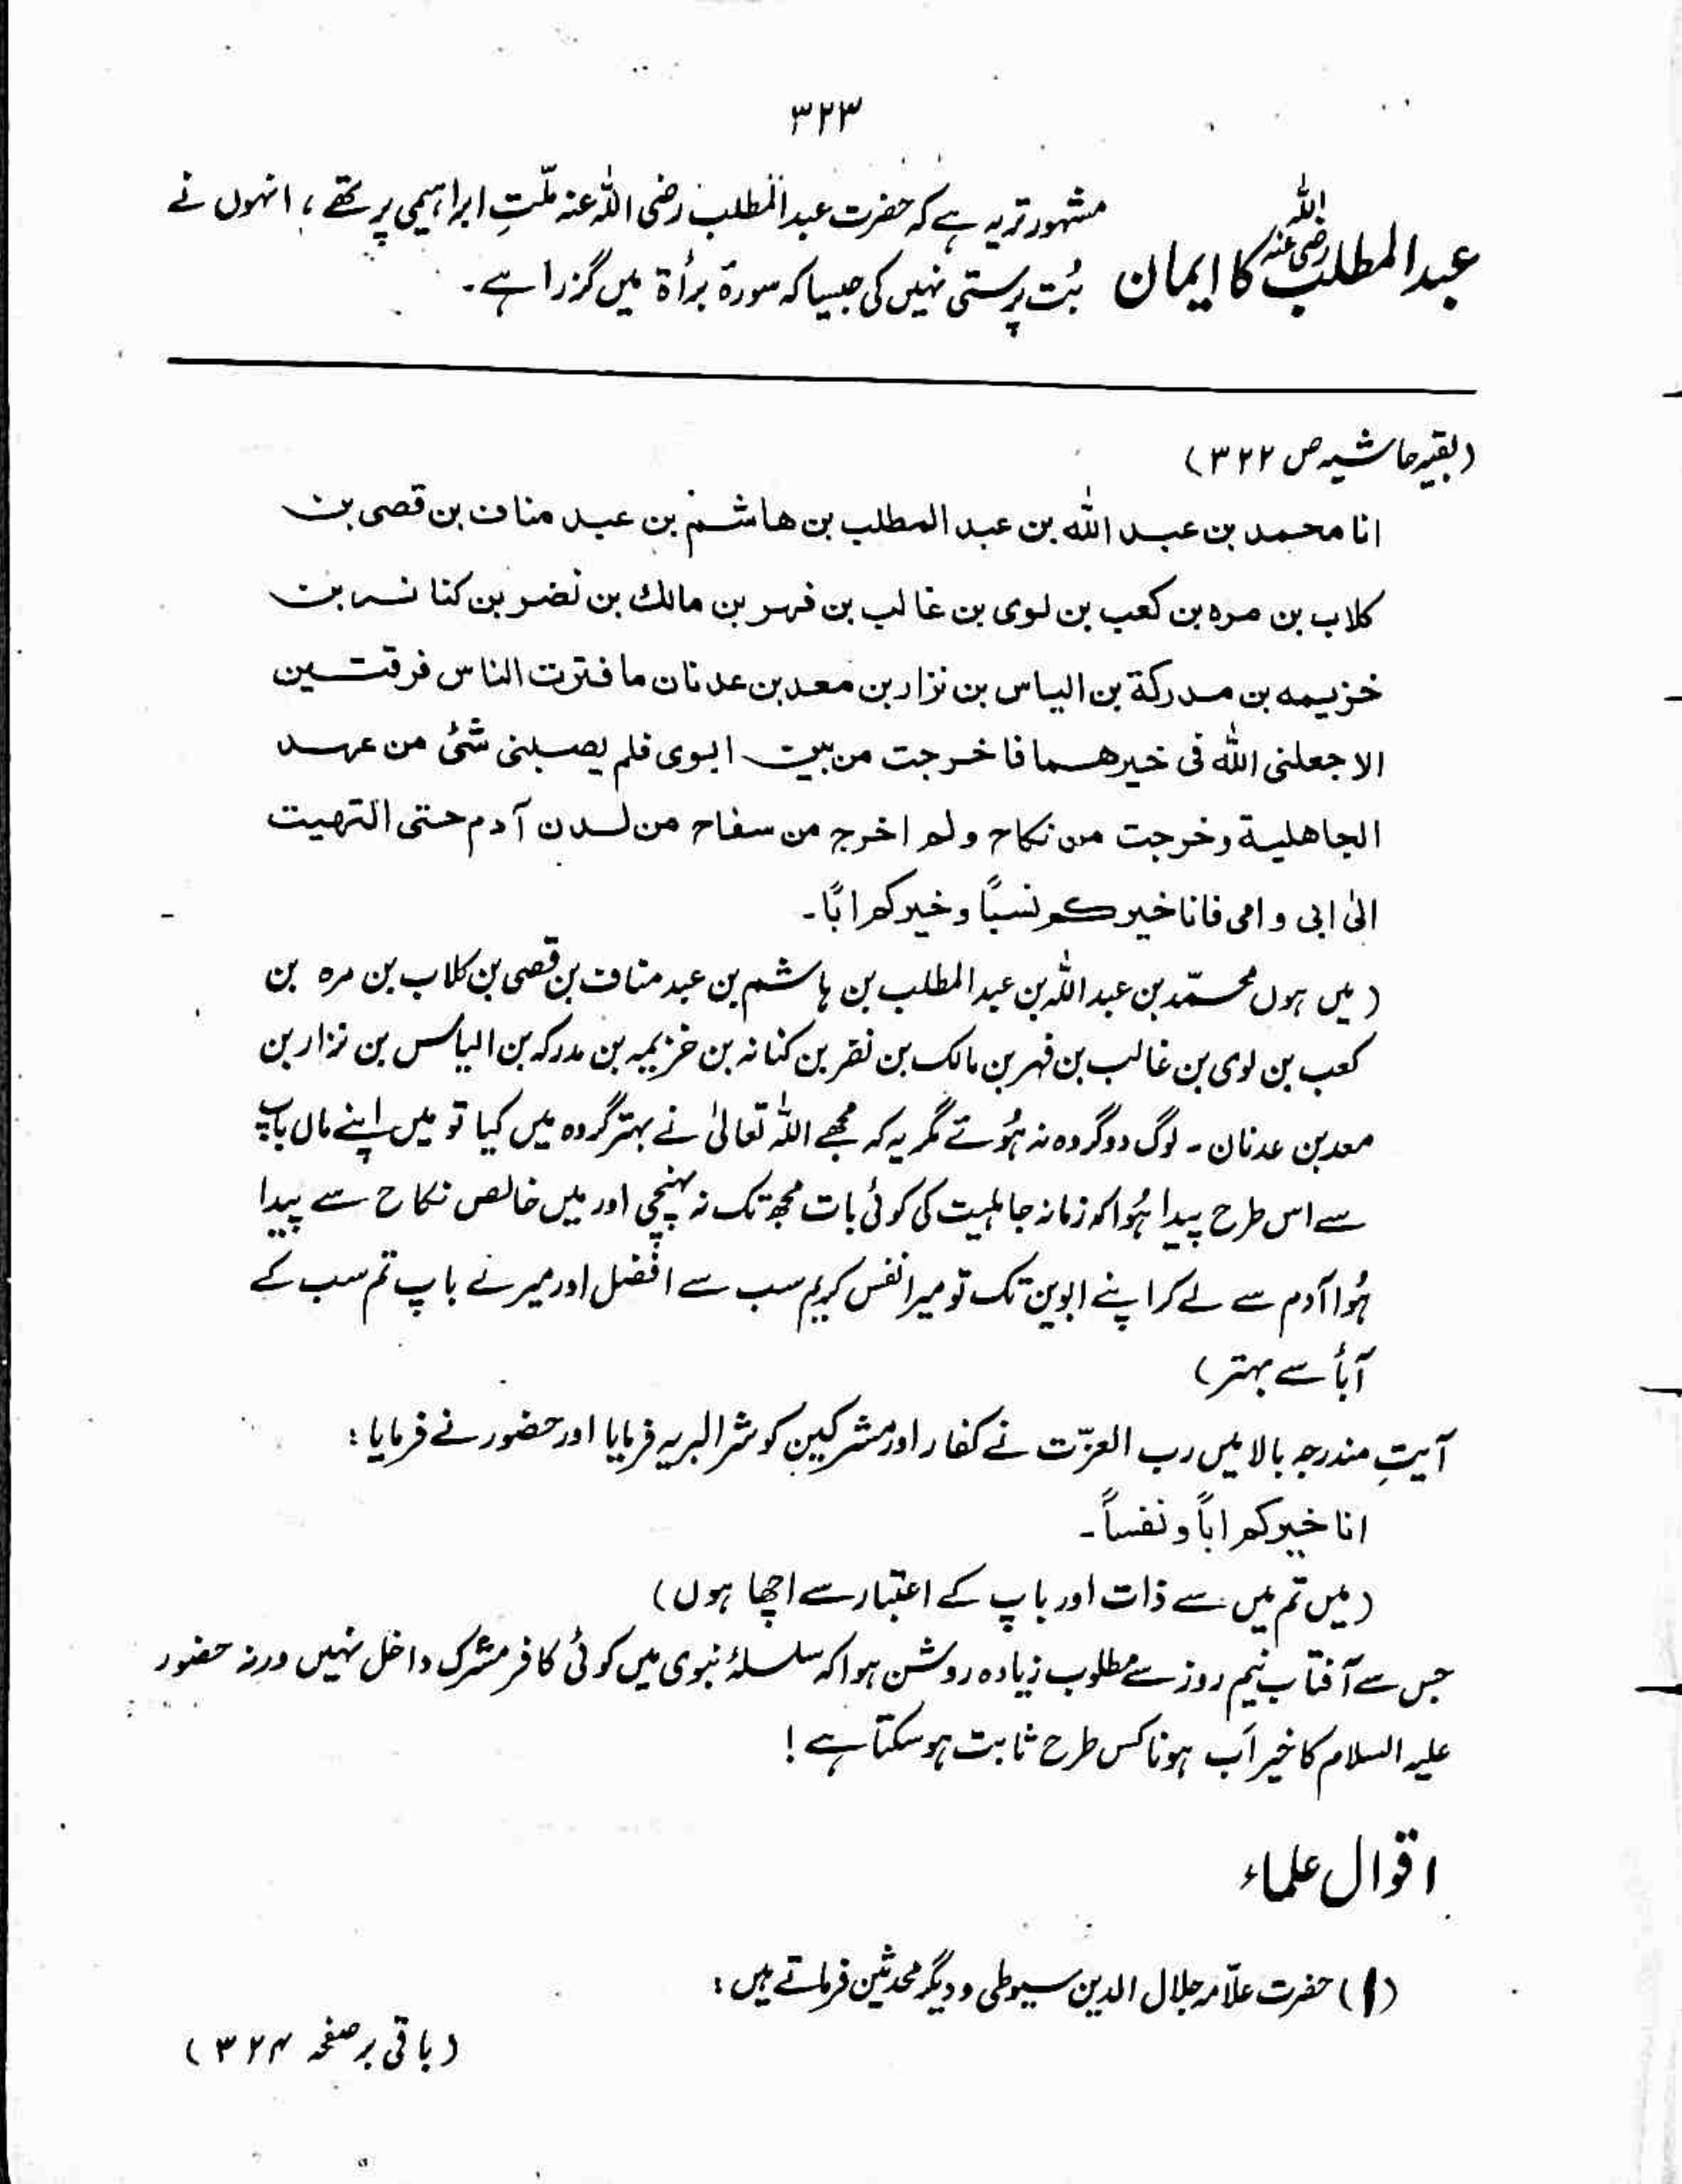 ۳۲۳
عبدالمطلب رضی اللہ عنہ کا ایمان
مشہور تر یہ ہے کہ حضرت عبدالمطلب رضی اللہ عنہ ملّتِ ابراہیمی پر تھے، انہوں نے
بُت پرستی نہیں کی جیسا کہ سورۃ برأۃ میں گزرا ہے۔
(بقیہ حاشیہ ص ۳۲۲)
انا محمد بن عبد اللہ بن عبد المطلب بن ھاشم بن عبد مناف بن قصی بن
کلاب بن مرہ بن کعب بن لوی بن غالب بن فہر بن مالك بن نضر بن کنانہ بن
خزیمہ بن مدرکة بن الیاس بن نزار بن معد بن عدنان ما فترت الناس فرقتین
الا جعلنی اللہ فی خیرھما فاخرجت من بیت ابوی فلم یصبنی شئ من عہد
الجاھلیة وخرجت من نکاح ولم اخرج من سفاح من لدن آدم حتی التھیت
الیٰ ابی و امی فانا خیرکم نسبًا و خیرکم ابًا۔
(میں ہوں محمّد بن عبد اللہ بن عبد المطلب بن ہاشم بن عبد مناف بن قصی بن کلاب بن مرہ بن
کعب بن لوی بن غالب بن فہر بن مالک بن نقر بن کنانہ بن خزیمہ بن مدرکہ بن الیاس بن نزار بن
معد بن عدنان۔ لوگ دو گروہ نہ ہُوئے مگر یہ کہ مجھے اللہ تعالیٰ نے بہتر گروہ میں کیا تو میں اپنے ماں باپ
سے اس طرح پیدا ہُوا کہ زمانہ جاہلیت کی کوئی بات مجھ تک نہ پہنچی اور میں خالص نکاح سے پیدا
ہُوا آدم سے لے کر اپنے ابوین تک تو میرا نفس کریم سب سے افضل اور میرے باپ تم سب کے
آبأ سے بہتر)
آیتِ مندرجہ بالا میں رب العزّت نے کفار اور مشرکین کو شر البریہ فرمایا اور حضور نے فرمایا:
انا خیرکم اباً و نفساً۔
(میں تم میں سے ذات اور باپ کے اعتبار سے اچھا ہوں)
جس سے آفتاب نیم روز سے مطلوب زیادہ روشن ہوا کہ سلسلۂ نبوی میں کوئی کافر مشرک داخل نہیں ورنہ حضور
علیہ السلام کا خیر اَب ہونا کس طرح ثابت ہو سکتا ہے!
اقوال علماء
(۱) حضرت علّامہ جلال الدین سیوطی و دیگر محدثین فرماتے ہیں:
(باقی بر صفحہ ۳۲۴)